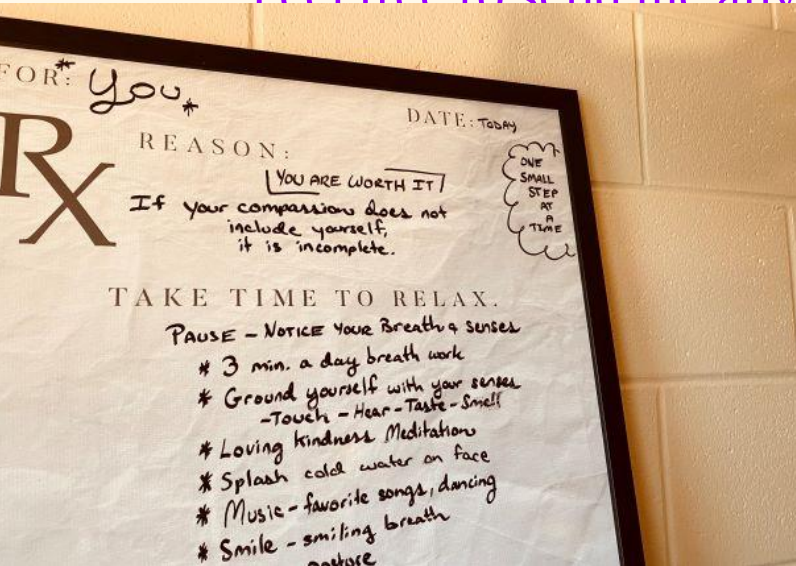 FOR: *You*
DATE: TODAY
Rx
REASON:
YOU ARE WORTH IT
If your compassion does not
include yourself,
it is incomplete.
ONE
SMALL
STEP
AT
A
TIME
TAKE TIME TO RELAX.
PAUSE - NOTICE YOUR Breath & senses
* 3 min. a day breath work
* Ground yourself with your senses
- Touch - Hear - Taste - Smell
* Loving kindness Meditation
* Splash cold water on face
* Music - favorite songs, dancing
* Smile - smiling breath
posture